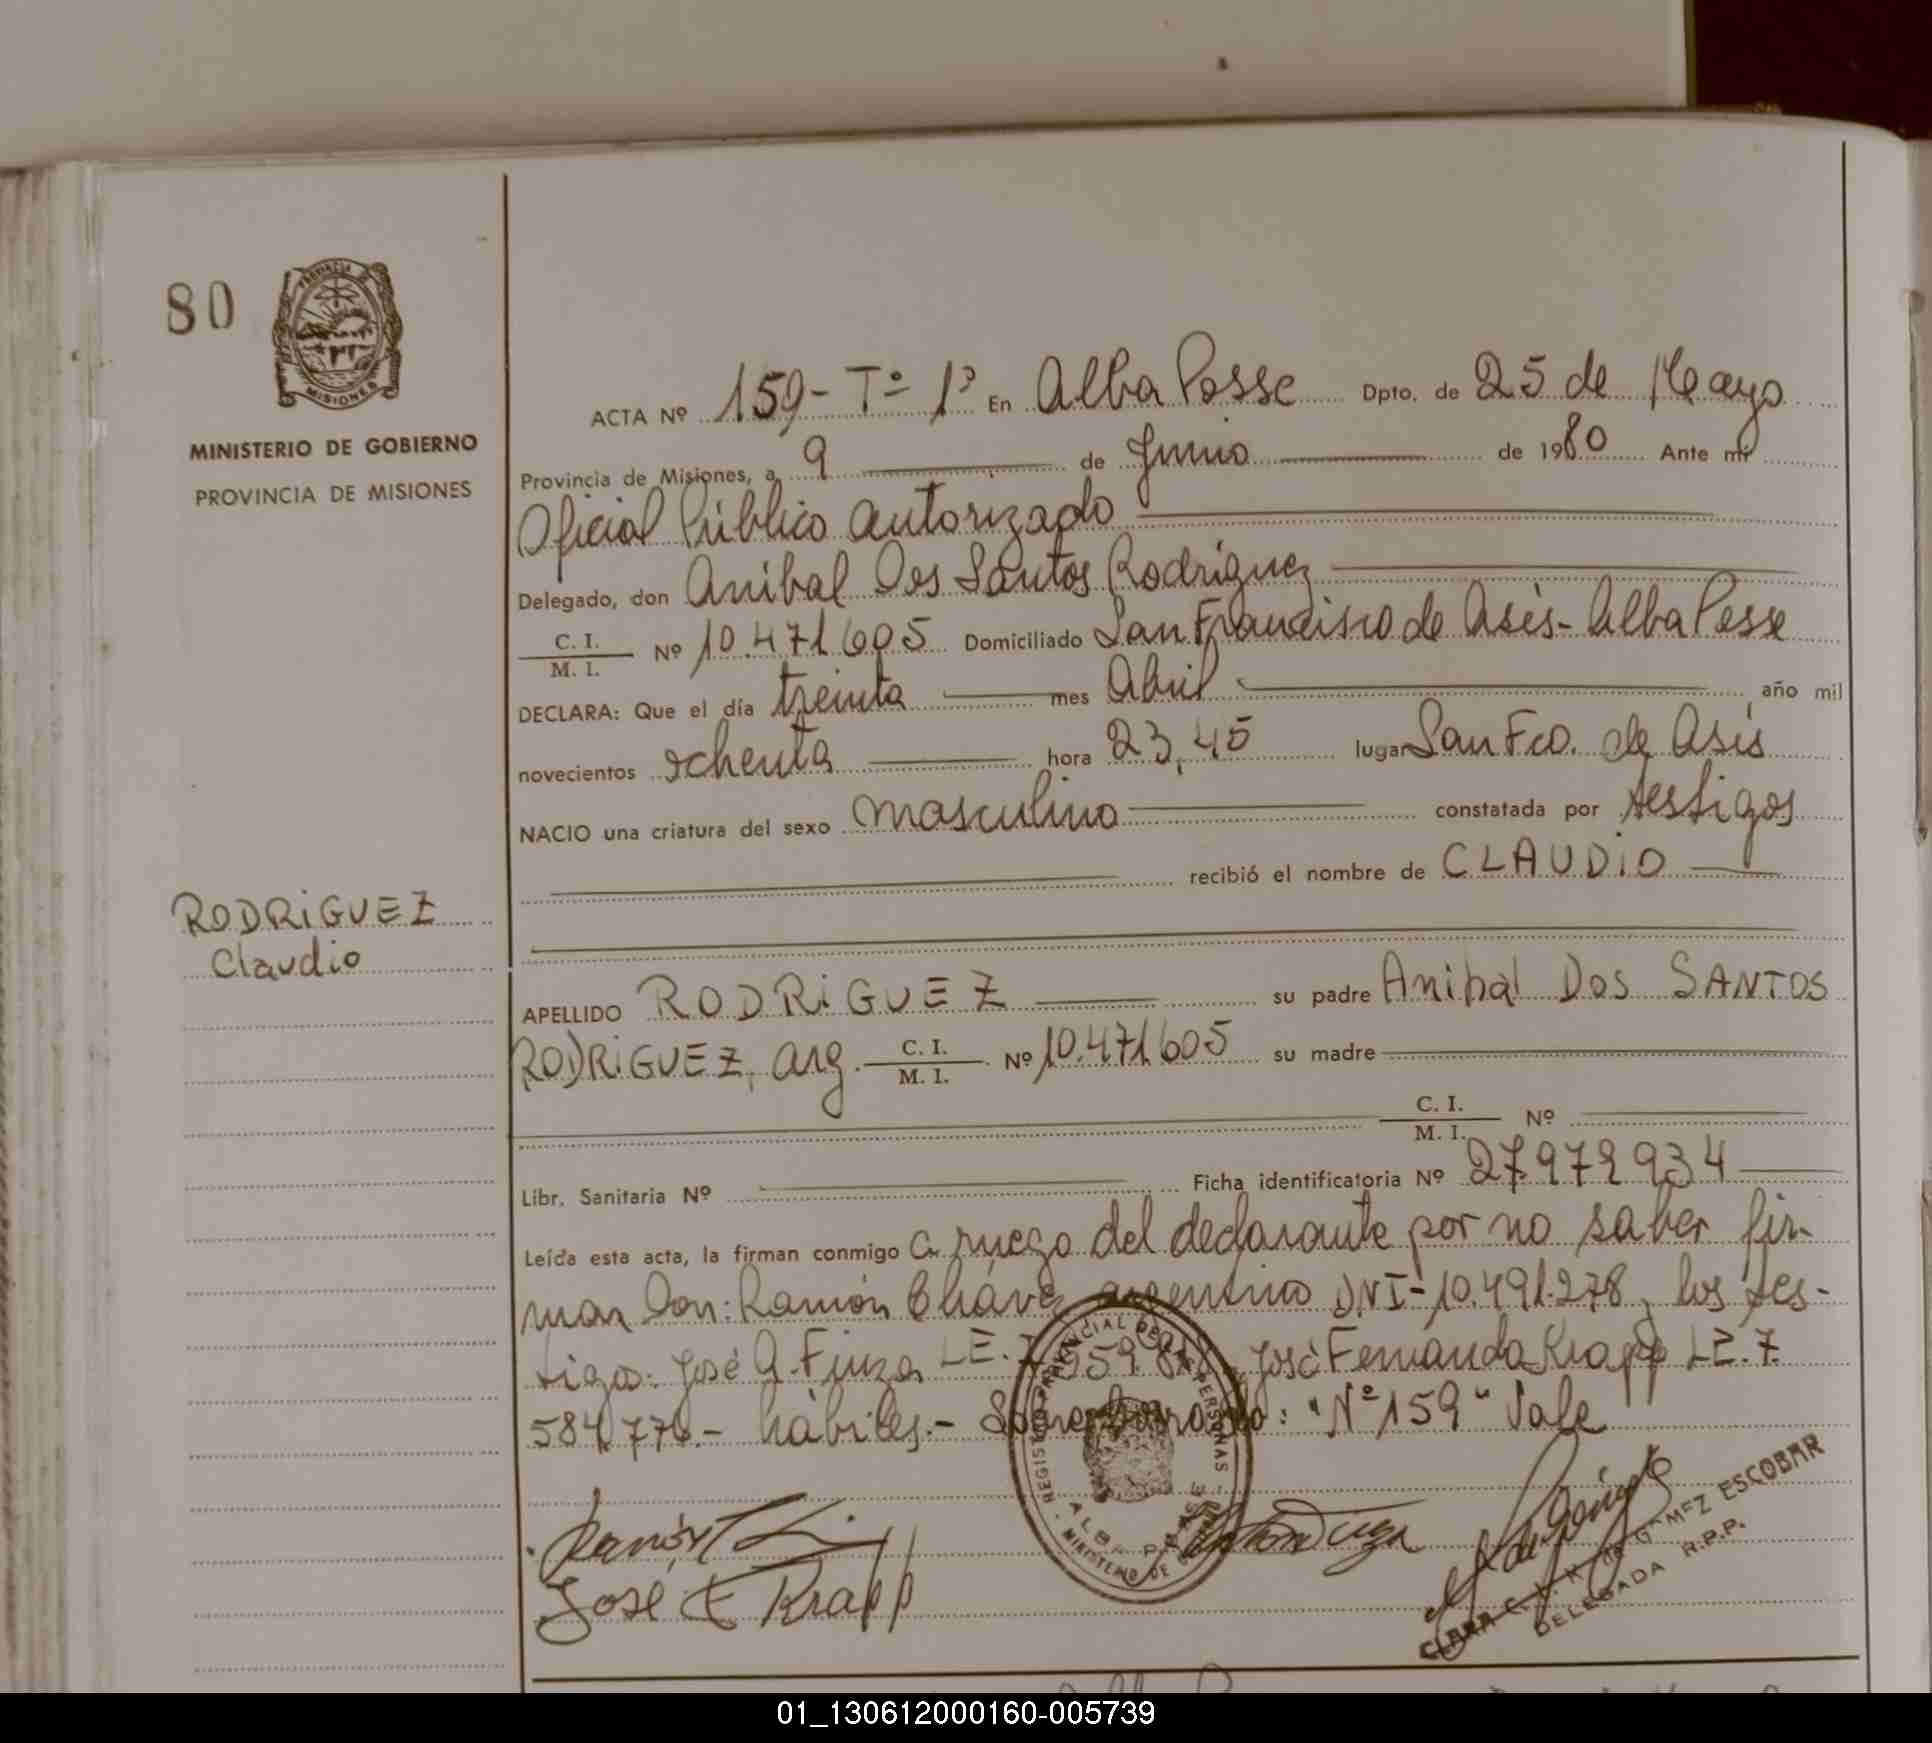 80
PROVINCIA DE
MISIONES
MINISTERIO DE GOBIERNO
PROVINCIA DE MISIONES
RODRIGUEZ
Claudio
ACTA Nº 159 - Tº 1º En Alba Posse Dpto. de 25 de Mayo
Provincia de Misiones, a 9 de Junio de 1980 Ante mí
Oficial Público autorizado
Delegado, don Anibal Dos Santos Rodriguez
C. I. / M. I. Nº 10.471.605 Domiciliado San Francisco de Asís - Alba Posse
DECLARA: Que el día treinta mes Abril año mil
novecientos ochenta hora 23,45 lugar San Fco. de Asís
NACIO una criatura del sexo masculino constatada por testigos
recibió el nombre de CLAUDIO
APELLIDO RODRIGUEZ su padre Anibal Dos SANTOS
RODRIGUEZ, arg. C. I. / M. I. Nº 10.471.605 su madre
C. I. / M. I. Nº
Libr. Sanitaria Nº Ficha identificatoria Nº 27979934
Leída esta acta, la firman conmigo a ruego del declarante por no saber fir-
mar Don: Ramón Cháve argentino DNI - 10.491.278, los tes-
tigos: José A. LE. 7 959 José Fernando Krapp LE. 7.
584.776.- hábiles.- Sobreborrado: "Nº 159" Vale
REGISTRO PROVINCIAL DE LAS PERSONAS
MINISTERIO DE
José F Krapp
CLARA GOMEZ ESCOBAR
DELEGADA R.P.P.
01_130612000160-005739